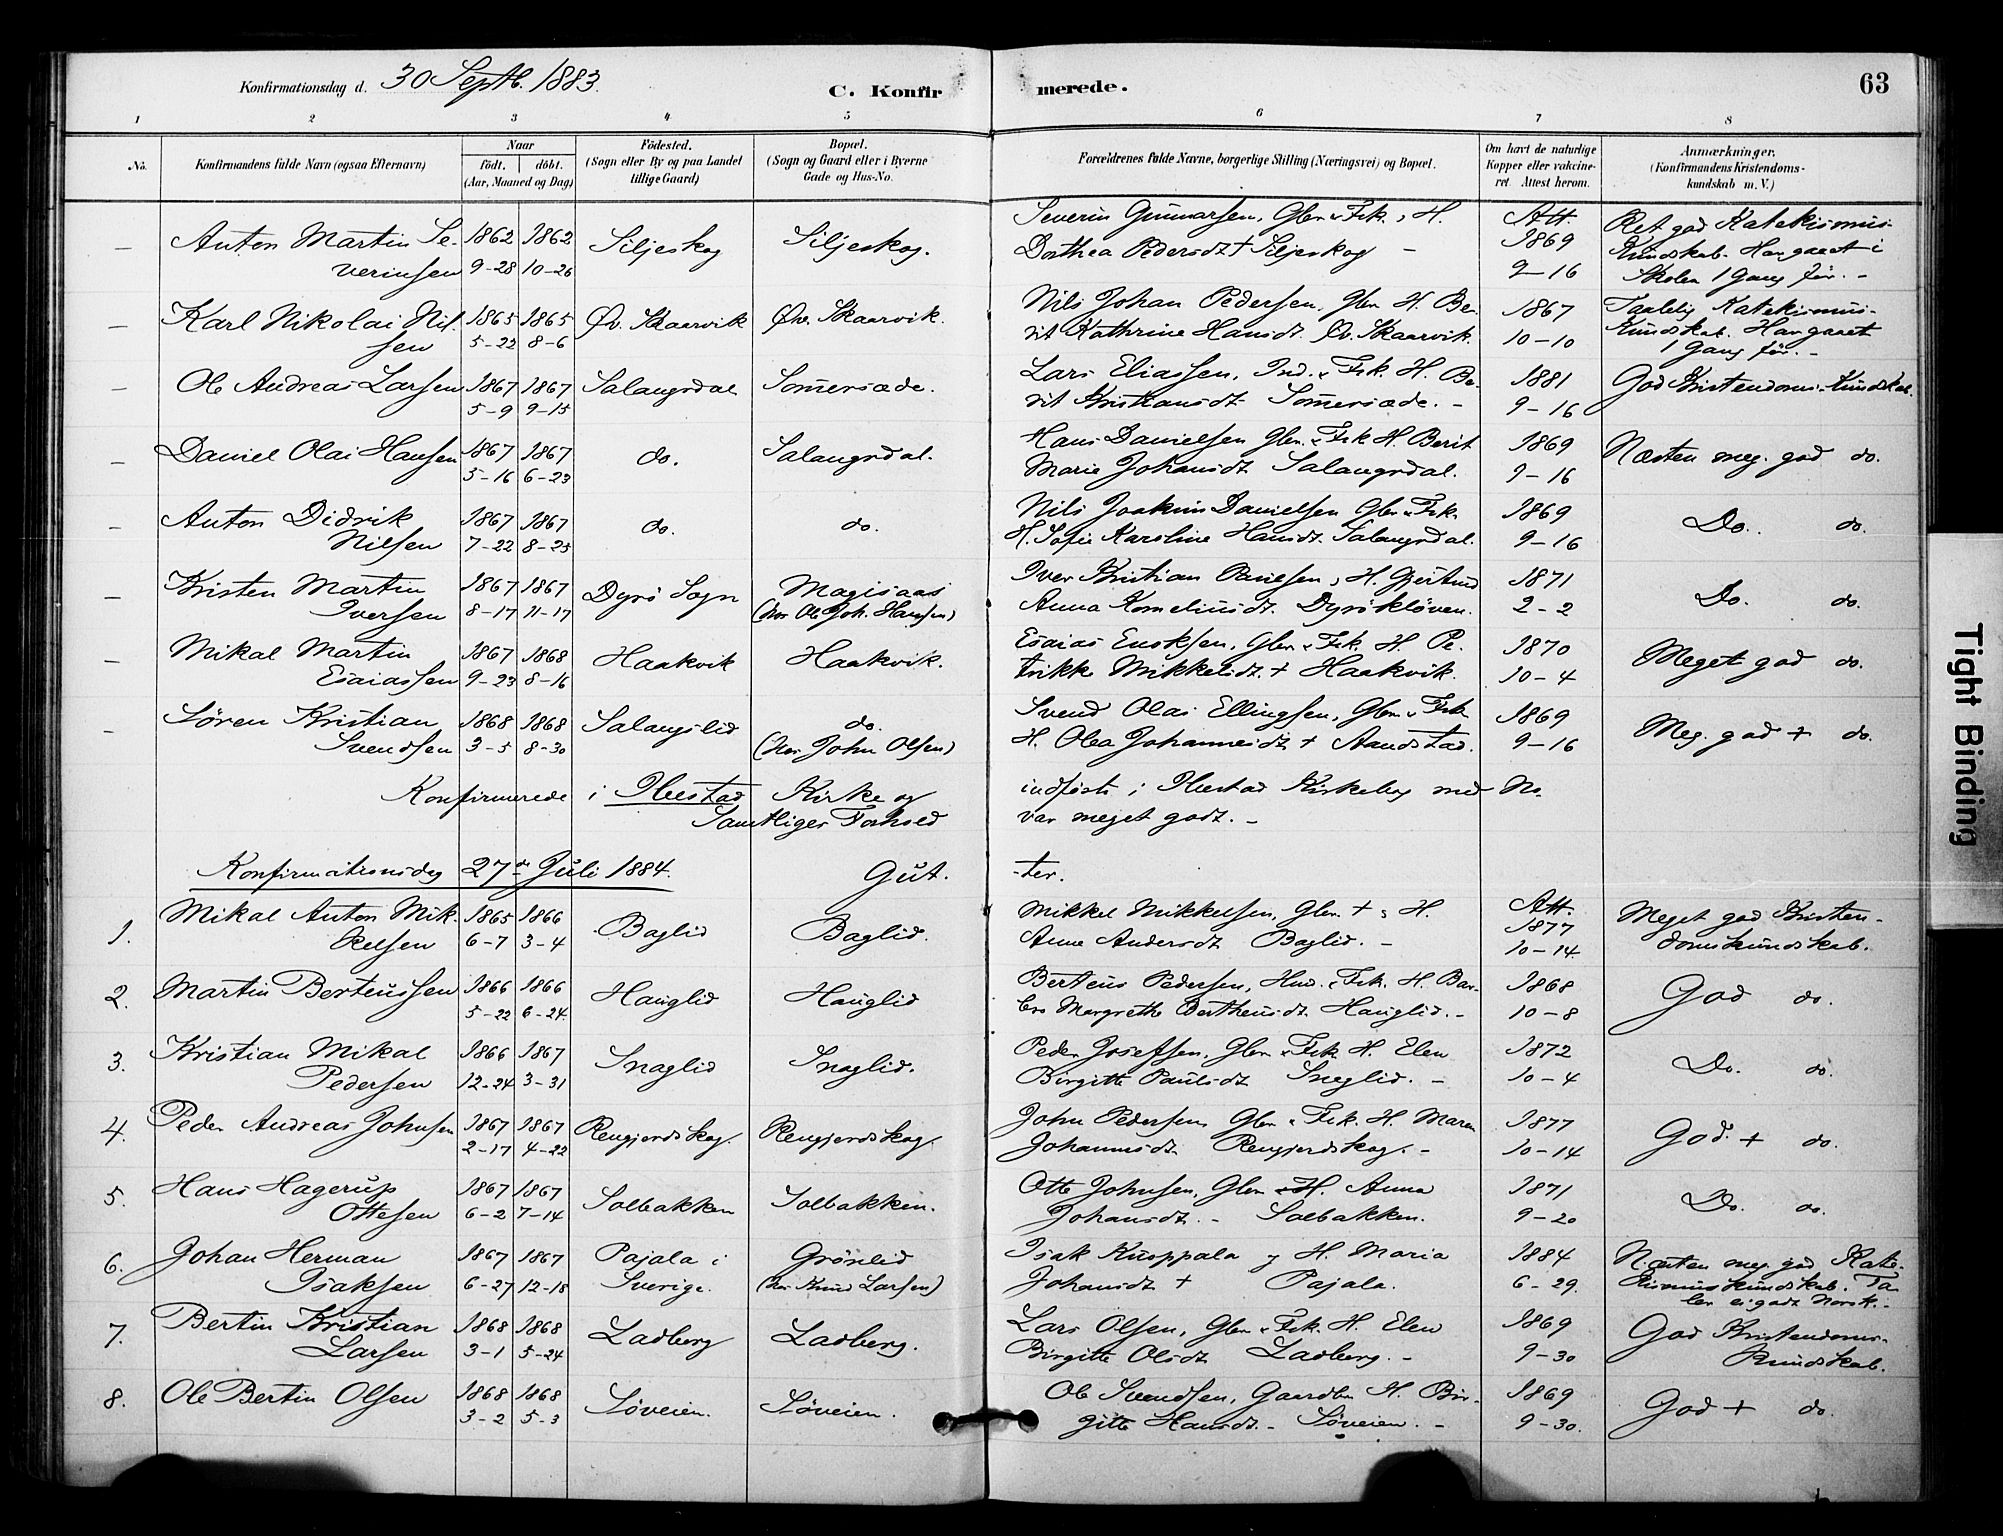 Konfirmationsdag d. 30 Septb. 1883.
C. Konfir
merede.
63
1 2 3 4 5 6 7 8
No.
Konfirmandens fulde Navn (ogsaa Efternavn)
Naar
født. døbt.
(Aar, Maaned og Dag)
Fødested.
(Sogn eller By og paa Landet
tillige Gaard)
Bopæl.
(Sogn og Gaard eller i Byerne
Gade og Hus-No.
Forældrenes fulde Navne, borgerlige Stilling (Næringsvei) og Bopæl.
Om havt de naturlige
Kopper eller vakcine-
ret. Attest herom.
Anmærkninger.
(Konfirmandens Kristendoms-
kundskab m. V.)
Anton Martin Se- 1862 1862 Siljeskog Siljeskog. Severin Gunnarsen, Gbr. & Fsk. , H. Att. Ret god Katekismus-
verinsen 9-28 10-26 Dorthea Pedersdt + Siljeskog - 1869 Kundskab. Har gaaet i
9-16 Skolen 1 Gang før. -
Karl Nikolai Nil- 1865 1865 Øv. Skaarvik Øv. Skaarvik. Nils Johan Pedersen, Gbr. H. Be- 1867 Taalelig Katekismus-
sen 5-22 8-6 rit Kathrine Hansdt. Øv. Skaarvik. 10-10 Kundskab. Har gaaet
1 Gang før. -
Ole Andreas Larsen 1867 1867 Salangsdal Sommersæde. Lars Eliassen, Ind. & Fsk. H. Be- 1881 God Kristendoms-Kundskab.
5-9 9-15 rit Kristiansdt Sommersæde. - 9-16
Daniel Olai Hansen 1867 1867 do. Salangsdal. Hans Danielsen Gbr. & Fsk H. Berit 1869 Næsten meg. god do.
5-16 6-23 Marie Johansdt. Salangsdal. 9-16
Anton Didrik 1867 1867 do. do. Nils Joakim Danielsen Gbr. & Fsk. 1869 Do. do.
Nilsen 7-22 8-25 H. Sofie Karoline Hansdt. Salangsdal. 9-16
Kristen Martin 1867 1867 Dyrø Sogn Magisaas Iver Kristian Paulsen, H. Gjertrud 1871 Do. do.
Iversen 8-17 11-17 (hos Ole Joh. Hansen) Anna Korneliusdt. Dyrøkløven. 2-2
Mikal Martin 1867 1868 Haakvik Haakvik. Esaias Enoksen, Gbr. & Fsk. H. Pe- 1870 Meget god do.
Esaiassen 9-23 8-16 trikke Mikkelsdt. + Haakvik. 10-4
Søren Kristian 1868 1868 Salangslid do. Svend Olai Ellingsen, Gbr. & Fsk 1869 Meg. god + do.
Svendsen 3-5 8-30 (hos John Olsen) H. Olea Johannesdt + Aandstad. 9-16
Konfirmerede i Ibestad Kirke og indførte i Ibestad Kirkebog med No.
Samtliges Forhold var meget godt. -
Konfirmationsdag 27de Juli 1884. Gut- -ter.
1. Mikal Anton Mik- 1865 1866 Baglid Baglid. Mikkel Mikkelsen, Gbr. + , H. Att. Meget god Kristen-
kelsen 6-7 3-4 Anne Andersdt Baglid. - 1877 domskundskab.
10-14
2. Martin Berteussen 1866 1866 Hauglid Hauglid Berteus Pedersen, Hmd. & Fsk. H. Bar- 1868 God do.
5-22 6-24 bro Margrethe Bertheusdt. Hauglid. - 10-8
3. Kristian Mikal 1866 1867 Snaglid Snaglid. Peder Josefsen, Gbr. & Fsk. H. Elen 1872 Do. do.
Pedersen 12-24 3-31 Birgitte Paulsdt Sneglid. - 10-4
4. Peder Andreas Johnsen 1867 1867 Rengjerdskog. Rengjerdskog. John Pedersen Gbr. & Fsk. H. Maren 1877 God. + do.
2-17 4-22 Johannesdt. Rengjerdskog. - 10-14
5. Hans Hagerup 1867 1867 Solbakken Solbakken. Otte Johnsen, Gbr. & H. Anna 1871 Do. do.
Ottesen 6-2 7-14 Johansdt. - Solbakken. 9-20
6. Johan Herman 1867 1867 Pajala i Grønlid Isak Kuoppala og H. Maria 1884 Næsten meg. god Kate-
Isaksen 6-27 12-18 Sverige. (hos Knud Larsen) Johansdt + Pajala. 6-29. kismuskundskab. Ta-
ler ei godt Norsk. -
7. Bertin Kristian 1868 1868 Ladberg Ladberg. Lars Olsen, Gbr. & Fsk. H. Elen 1869 God Kristendoms-
Larsen 3-1 5-24 Birgitte Olsdt Ladberg. - 9-30 kundskab.
8. Ole Bertin Olsen 1868 1868 Løveien. Løveien. Ole Svendsen, Gaardbr. H. Bir- 1869 God + do.
3-2 5-3 gitte Hansdt. - Løveien. - 9-30.
Tight Binding